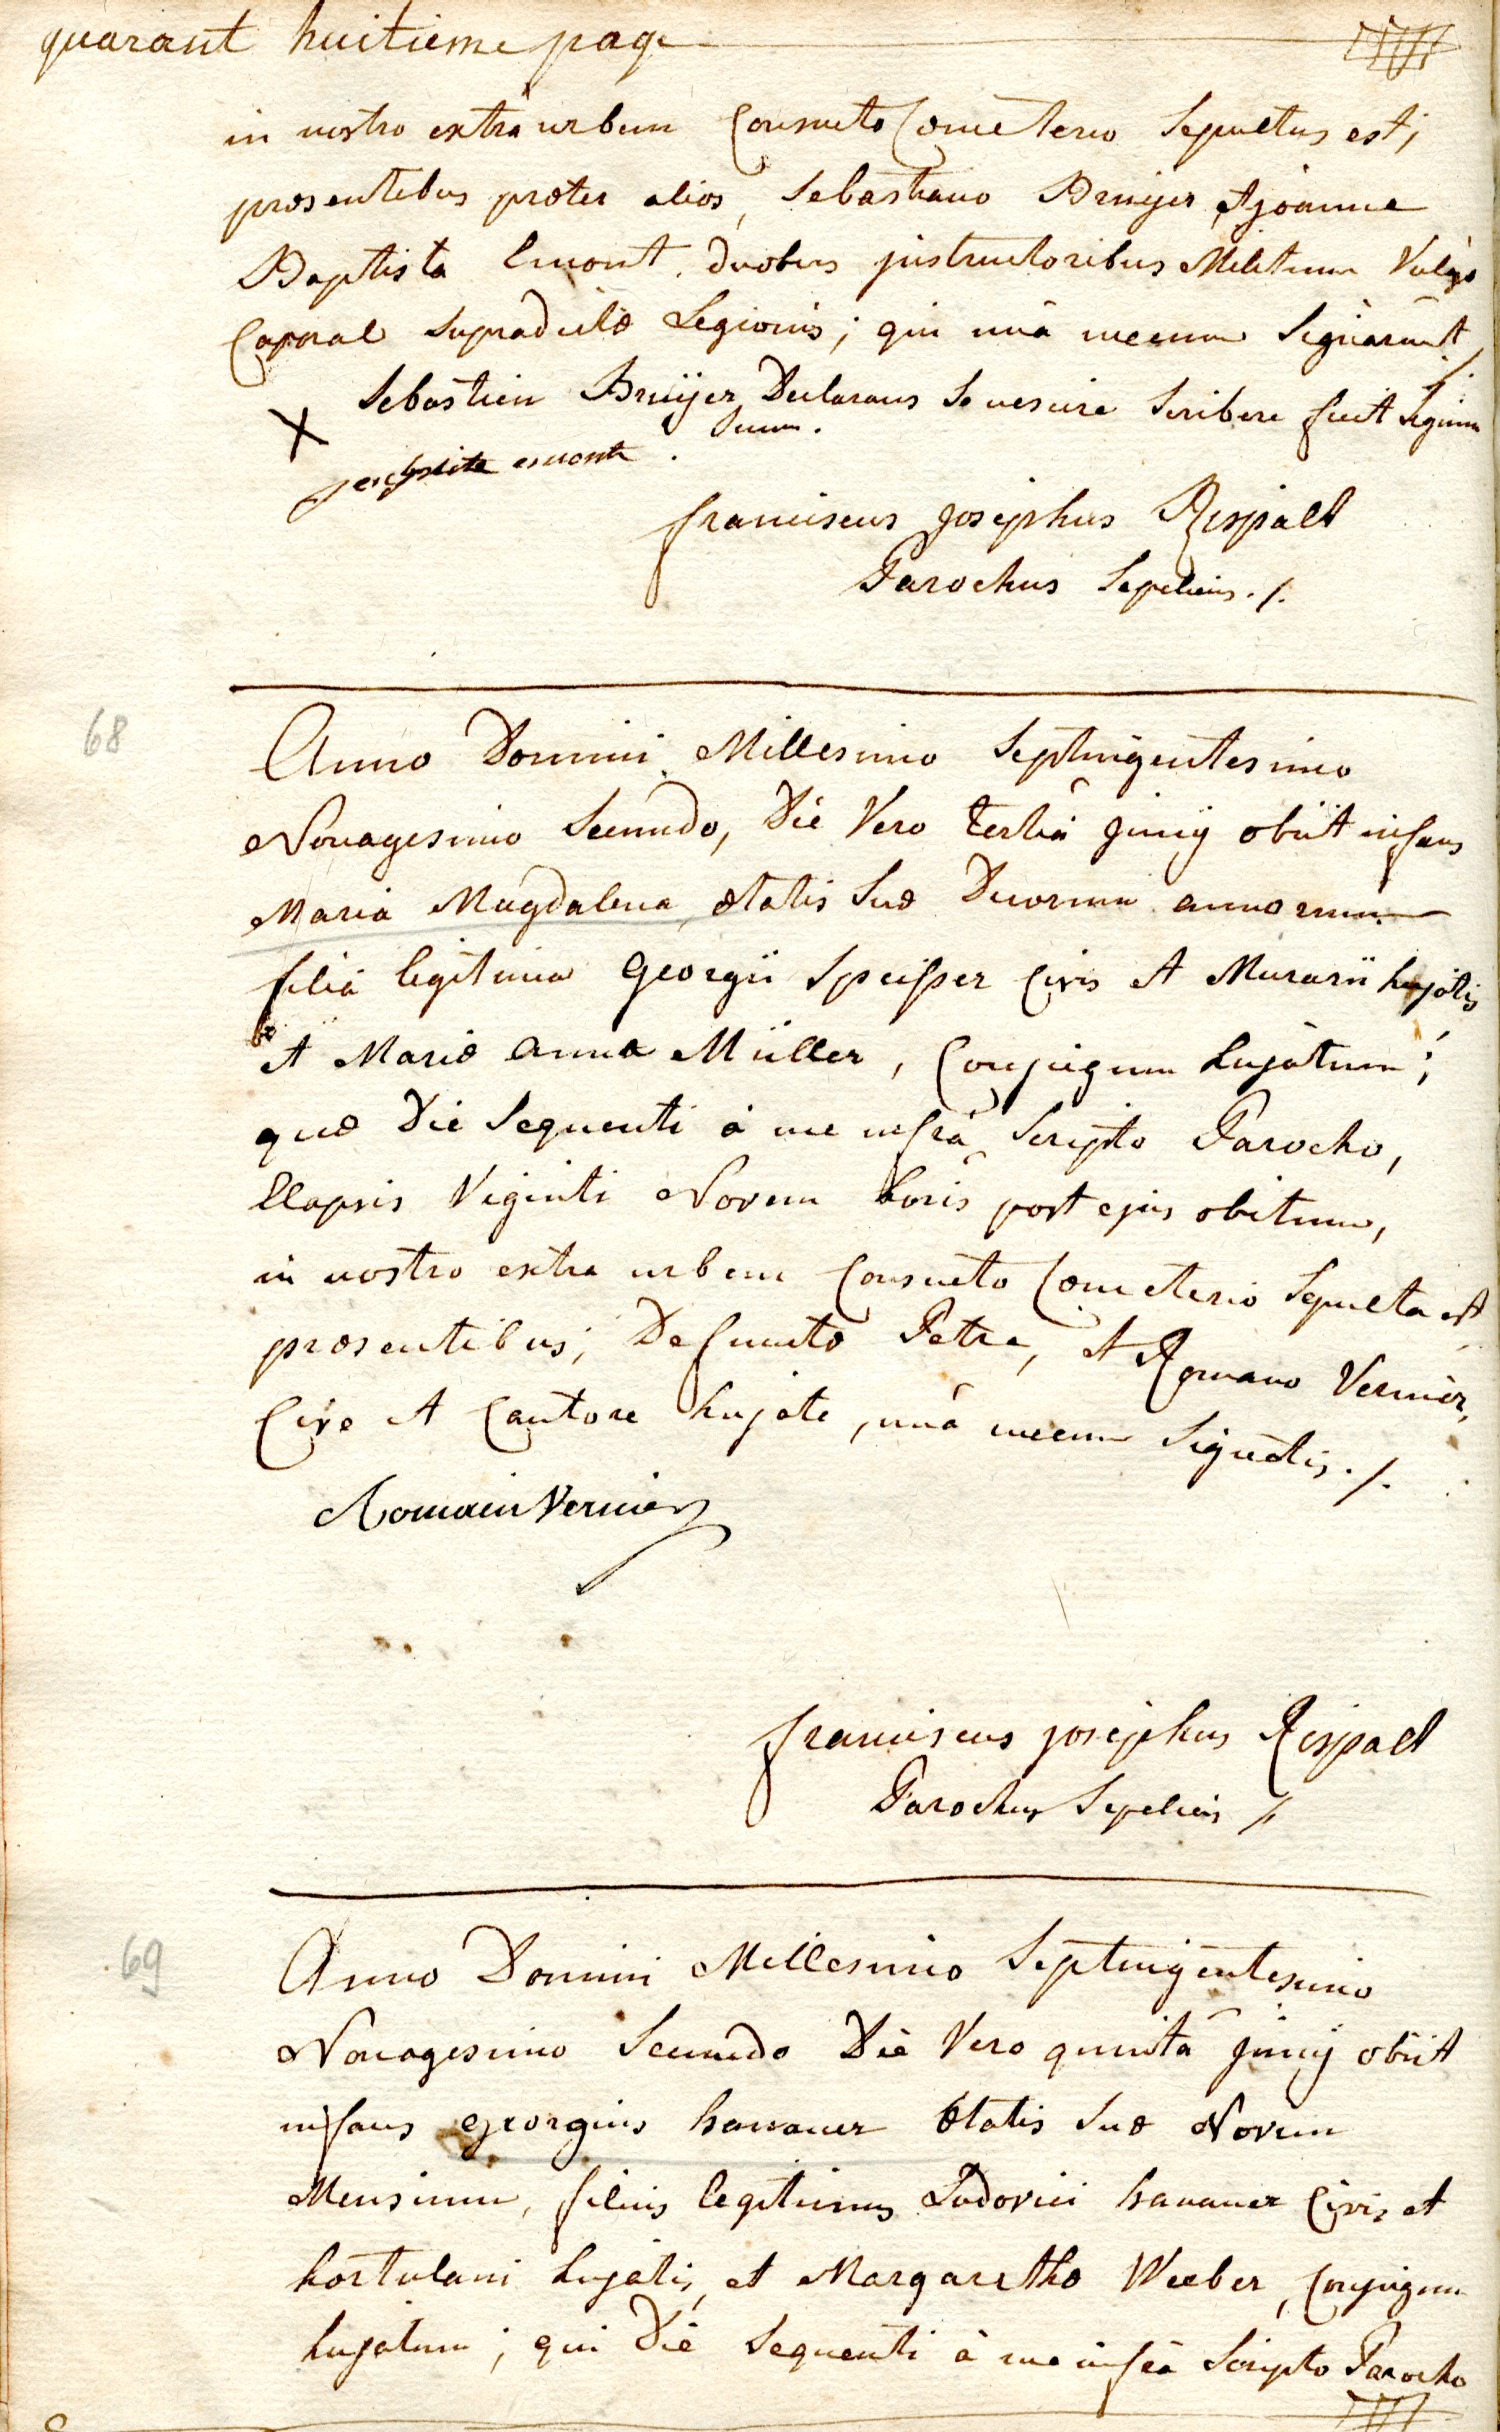 quarant huitieme page
in nostro extra urbem Consueto Cœmeterio Sepultus est;
præsentibus præter alios, Sebastiano Bruÿer, et joanne
Baptista Emont. duobus jnstructoribus Militum Vulgo
Caporal Supradictæ Legionis; qui unà mecum Signarunt
Sebastien Bruÿer Declarans Se nescire Scribere fecit Signum
Suum.
X
emont
franciscus josephus Rispalt
Parochus Sepeliens ./.
68
Anno Domini Millesimo Septingentesimo
Nonagesimo Secundo, Die Vero tertiâ junij obiit infans
Maria Magdalena ætatis Suæ Duorum annorum
filia legitima Georgii Speisser Civis et Murarii hujatis
et Mariæ Anna Müller, Conjugum hujatum;
quæ Die Sequenti à me infrà Scripto Parocho,
Elapsis Viginti Novem horis post ejus obitum,
in nostro extra urbem Consueto Cœmeterio Sepulta est
præsentibus; Defunctæ Patre, et Romano Vernier,
Cive et Cantore hujate, unà mecum Signatis ./.
Romain Vernier
franciscus josephus Rispalt
Parochus Sepeliens ./.
69
Anno Domini Millesimo Septingentesimo
Nonagesimo Secundo Die Vero quintâ junij obiit
infans georgius hanauer ætatis Suæ Novem
Mensium, filius legitimus Ludovici hanauer Civis et
hortulani hujatis, et Margarethæ Weeber, Conjugum
hujatum; qui Die Sequenti à me infrà Scripto Parocho